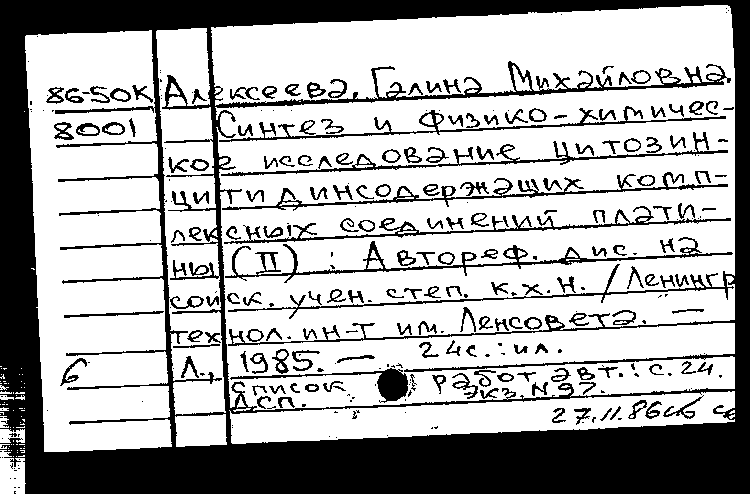 86-50К Алексеева, Галина Михайловна.
8001 Синтез и физико-химичес-
кое исследование цитозин-
цитидинсодержащих комп-
лексных соединений плати-
ны (II) : Автореф. дис. на
соиск. учен. степ. к.х.н. / Ленингр
технол. ин-т им. Ленсовета. —
6 Л., 1985. — 24 с. : ил.
Список работ авт.: с. 24.
ДСП. Экз. N 97.
27.11.86